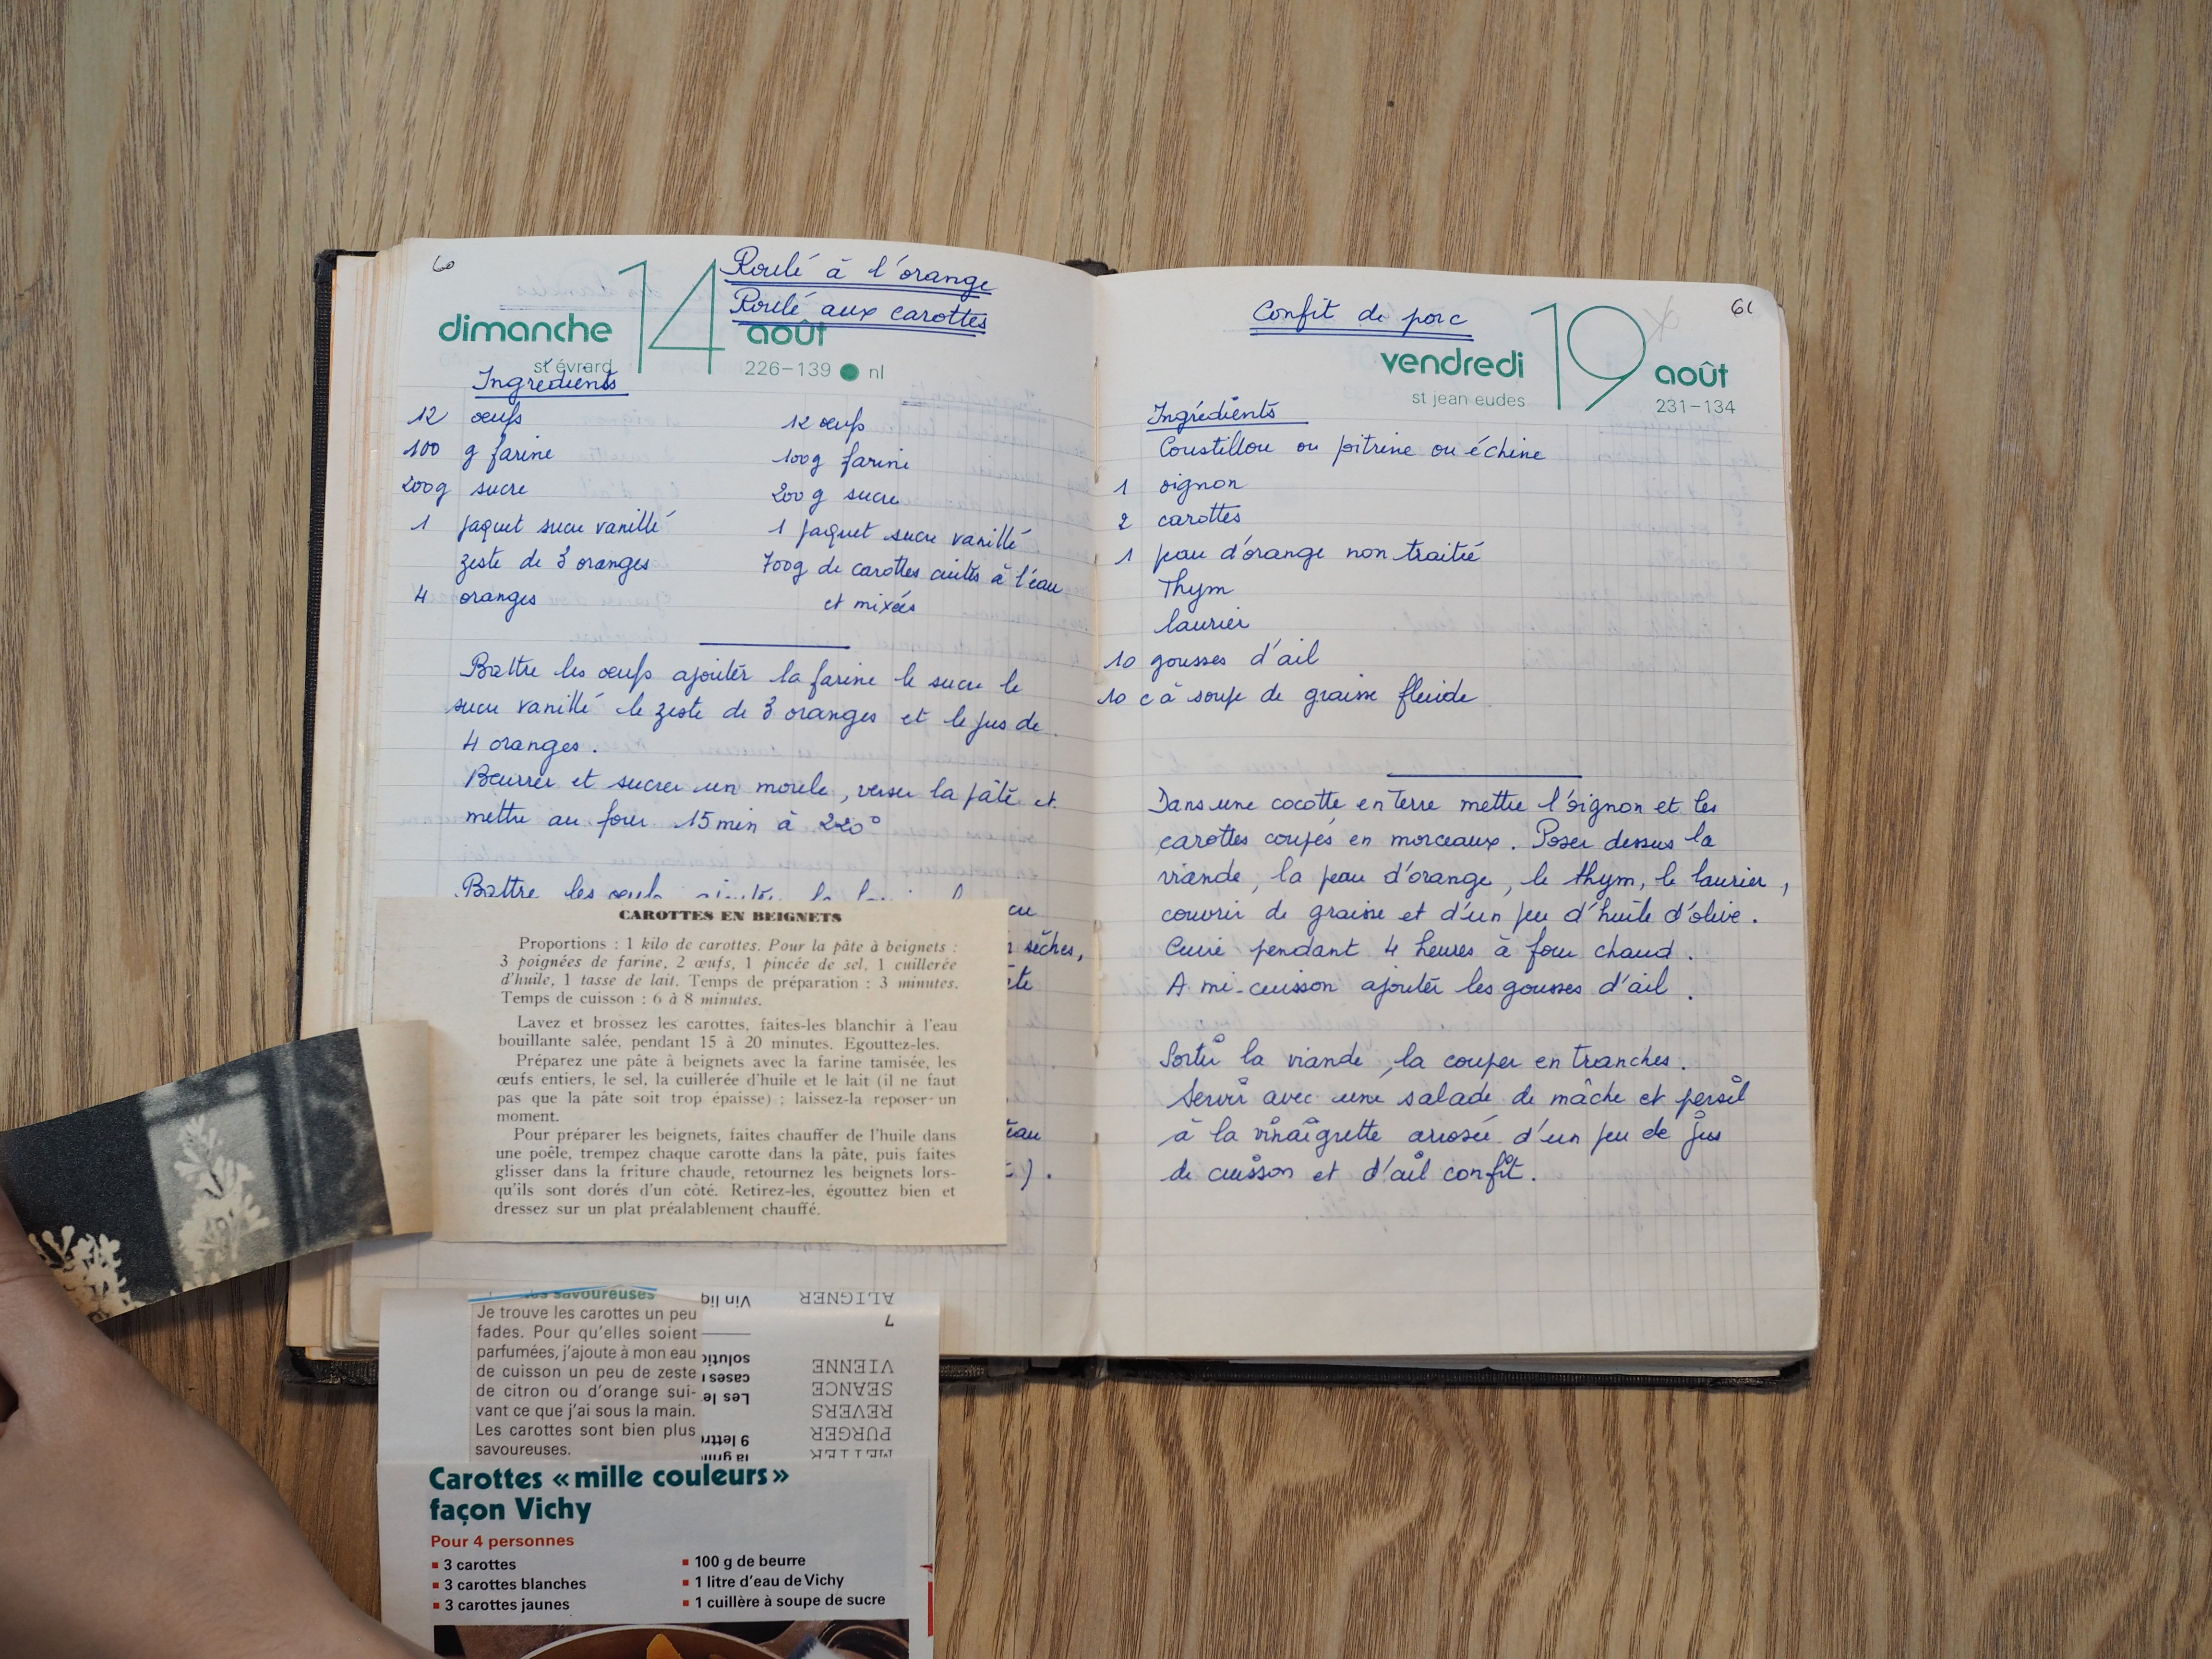 60
Roulé à l'orange
Roulé aux carottes
dimanche 14 août
st évrard
226-139 nl
Ingrédients
12 œufs
100 g farine
200g sucre
1 paquet sucre vanillé
zeste de 3 oranges
4 oranges
12 œufs
100g farine
200 g sucre
1 paquet sucre vanillé
700g de carottes cuites à l'eau
et mixées
Battre les œufs ajouter la farine le sucre le
sucre vanillé le zeste de 3 oranges et le jus de
4 oranges.
Beurrer et sucrer un moule, verser la pâte et
mettre au four 15min à 220°
Battre les œufs ajouter la
sèches,
CAROTTES EN BEIGNETS
Proportions : 1 kilo de carottes. Pour la pâte à beignets :
3 poignées de farine, 2 œufs, 1 pincée de sel, 1 cuillerée
d'huile, 1 tasse de lait. Temps de préparation : 3 minutes.
Temps de cuisson : 6 à 8 minutes.
Lavez et brossez les carottes, faites-les blanchir à l'eau
bouillante salée, pendant 15 à 20 minutes. Egouttez-les.
Préparez une pâte à beignets avec la farine tamisée, les
œufs entiers, le sel, la cuillerée d'huile et le lait (il ne faut
pas que la pâte soit trop épaisse) ; laissez-la reposer un
moment.
Pour préparer les beignets, faites chauffer de l'huile dans
une poêle, trempez chaque carotte dans la pâte, puis faites
glisser dans la friture chaude, retournez les beignets lors-
qu'ils sont dorés d'un côté. Retirez-les, égouttez bien et
dressez sur un plat préalablement chauffé.
savoureuses
Je trouve les carottes un peu
fades. Pour qu'elles soient
parfumées, j'ajoute à mon eau
de cuisson un peu de zeste
de citron ou d'orange sui-
vant ce que j'ai sous la main.
Les carottes sont bien plus
savoureuses.
ALIGNER
Vin
7
VIENNE
SEANCE
cases
REVERS
Les
PURGER
9
Carottes « mille couleurs »
façon Vichy
Pour 4 personnes
3 carottes
3 carottes blanches
3 carottes jaunes
100 g de beurre
1 litre d'eau de Vichy
1 cuillère à soupe de sucre
61
Confit de porc
vendredi 19 août
st jean eudes
231-134
Ingrédients
Coustillou ou pitrine ou échine
1 oignon
2 carottes
1 peau d'orange non traitée
Thym
laurier
10 gousses d'ail
10 c à soupe de graisse fluide
Dans une cocotte en terre mettre l'oignon et les
carottes coupés en morceaux. Poser dessus la
viande, la peau d'orange, le thym, le laurier,
couvrir de graisse et d'un peu d'huile d'olive.
Cuire pendant 4 heures à four chaud.
A mi-cuisson ajouter les gousses d'ail.
Sortir la viande, la couper en tranches.
Servir avec une salade de mâche et persil
à la vinaigrette arrosée d'un peu de jus
de cuisson et d'ail confit.